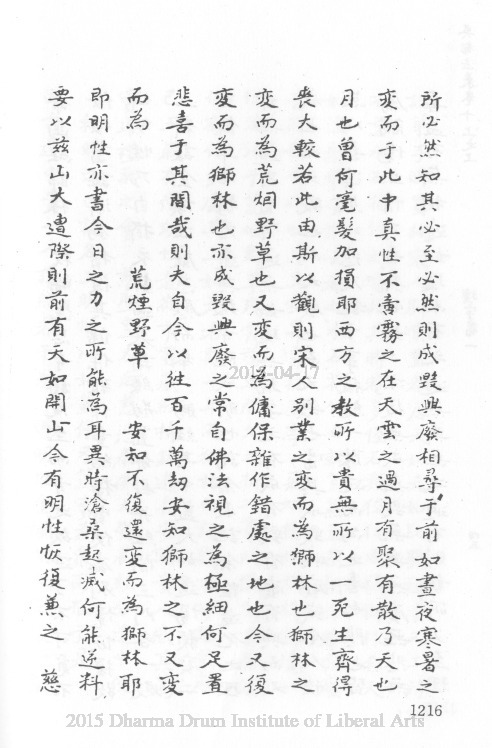 所必然知其必至必然則成毀興廢相尋于前如晝夜寒暑之
変而于此中真性不啻霧之在天雲之遇月有聚有散乃天也
月也曾何毫髮加損耶西方之教所以貴無所以一死生齊得
喪大較若此由斯以觀則宋人别業之変而為獅林也獅林之
変而為荒烟野草也又変而為傭保雜作錯處之地也今又復
変而為獅林也亦成毀興廢之常自佛法視之為極細何足置
悲喜于其間哉則夫自今以往百千萬劫安知獅林之不又変
而為　荒煙野草　安知不復還変而為獅林耶
即明性亦書今日之力之所能為耳異時滄桑起滅何能逆料
要以兹山大遭際則前有天如開山今有明性恢復兼之　慈
1216
2015-04-17
2015 Dharma Drum Institute of Liberal Arts